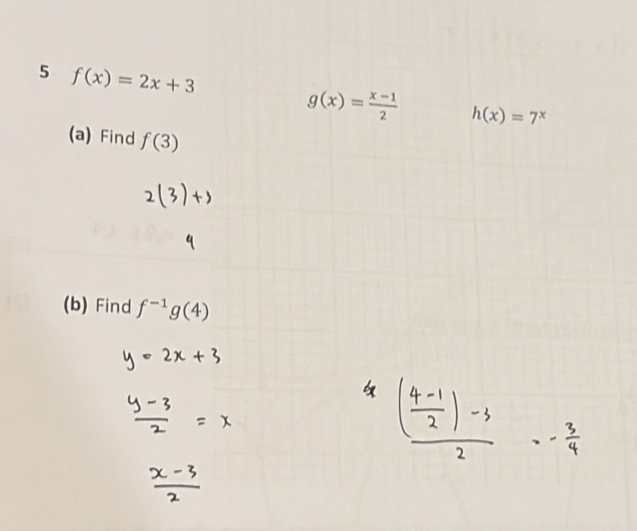 5 f(x) = 2x + 3
g(x) = \frac{x-1}{2}
h(x) = 7^x
(a) Find f(3)
2(3)+3
9
(b) Find f^{-1}g(4)
y = 2x + 3
\frac{y-3}{2} = x
\frac{x-3}{2}
\frac{\left(\frac{4-1}{2}\right)-3}{2} = -\frac{3}{4}